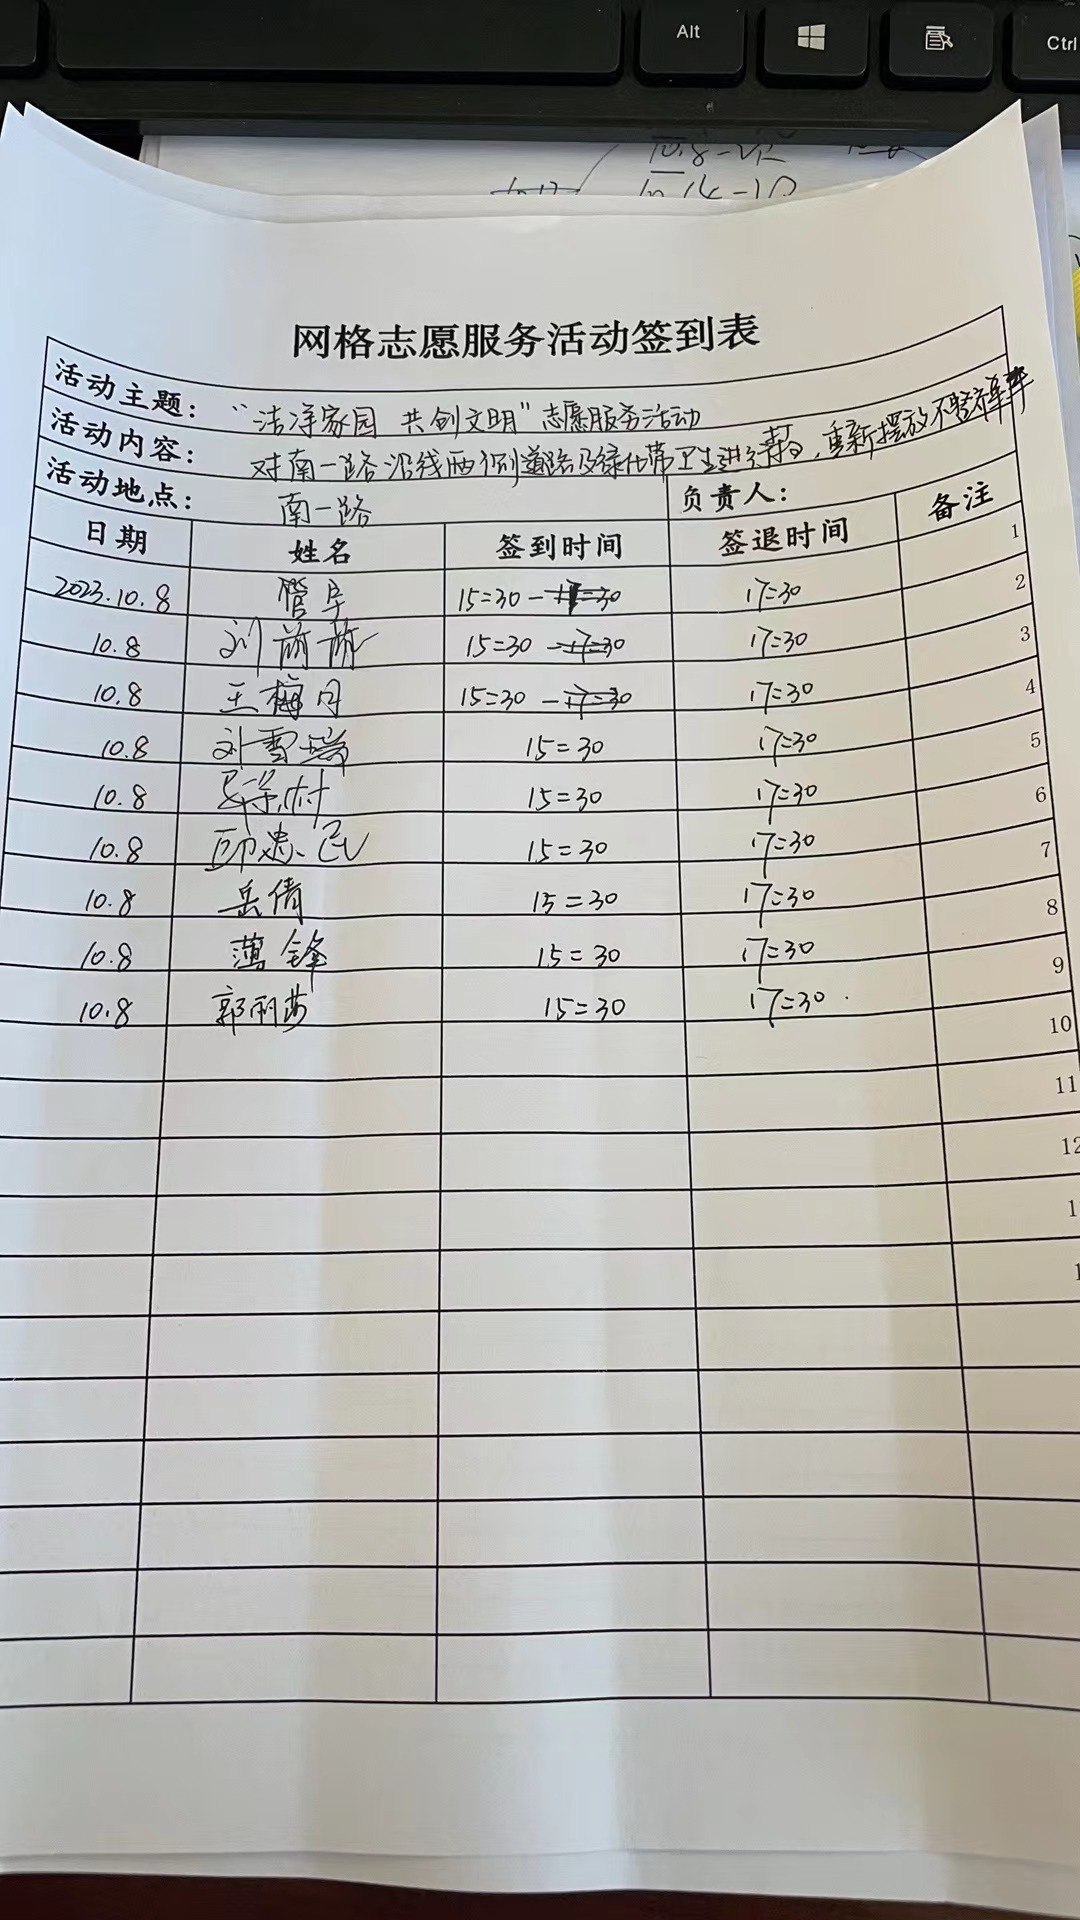 Alt
Ctrl
网格志愿服务活动签到表
活动主题：“洁净家园 共创文明”志愿服务活动
活动内容：对南一路沿线两侧道路及绿化带卫生进行，重新摆放不整齐单车
活动地点：南一路 负责人：
日期 姓名 签到时间 签退时间 备注
1
2023.10.8 15=30 17=30 2
10.8 刘 15=30 17=30 3
10.8 王梅月 15=30 17=30 4
10.8 刘雪瑞 15=30 17=30 5
10.8 15=30 17=30 6
10.8 15=30 17=30 7
10.8 岳倩 15=30 17=30 8
10.8 薄锋 15=30 17=30 9
10.8 郭丽莎 15=30 17=30 10
11
12